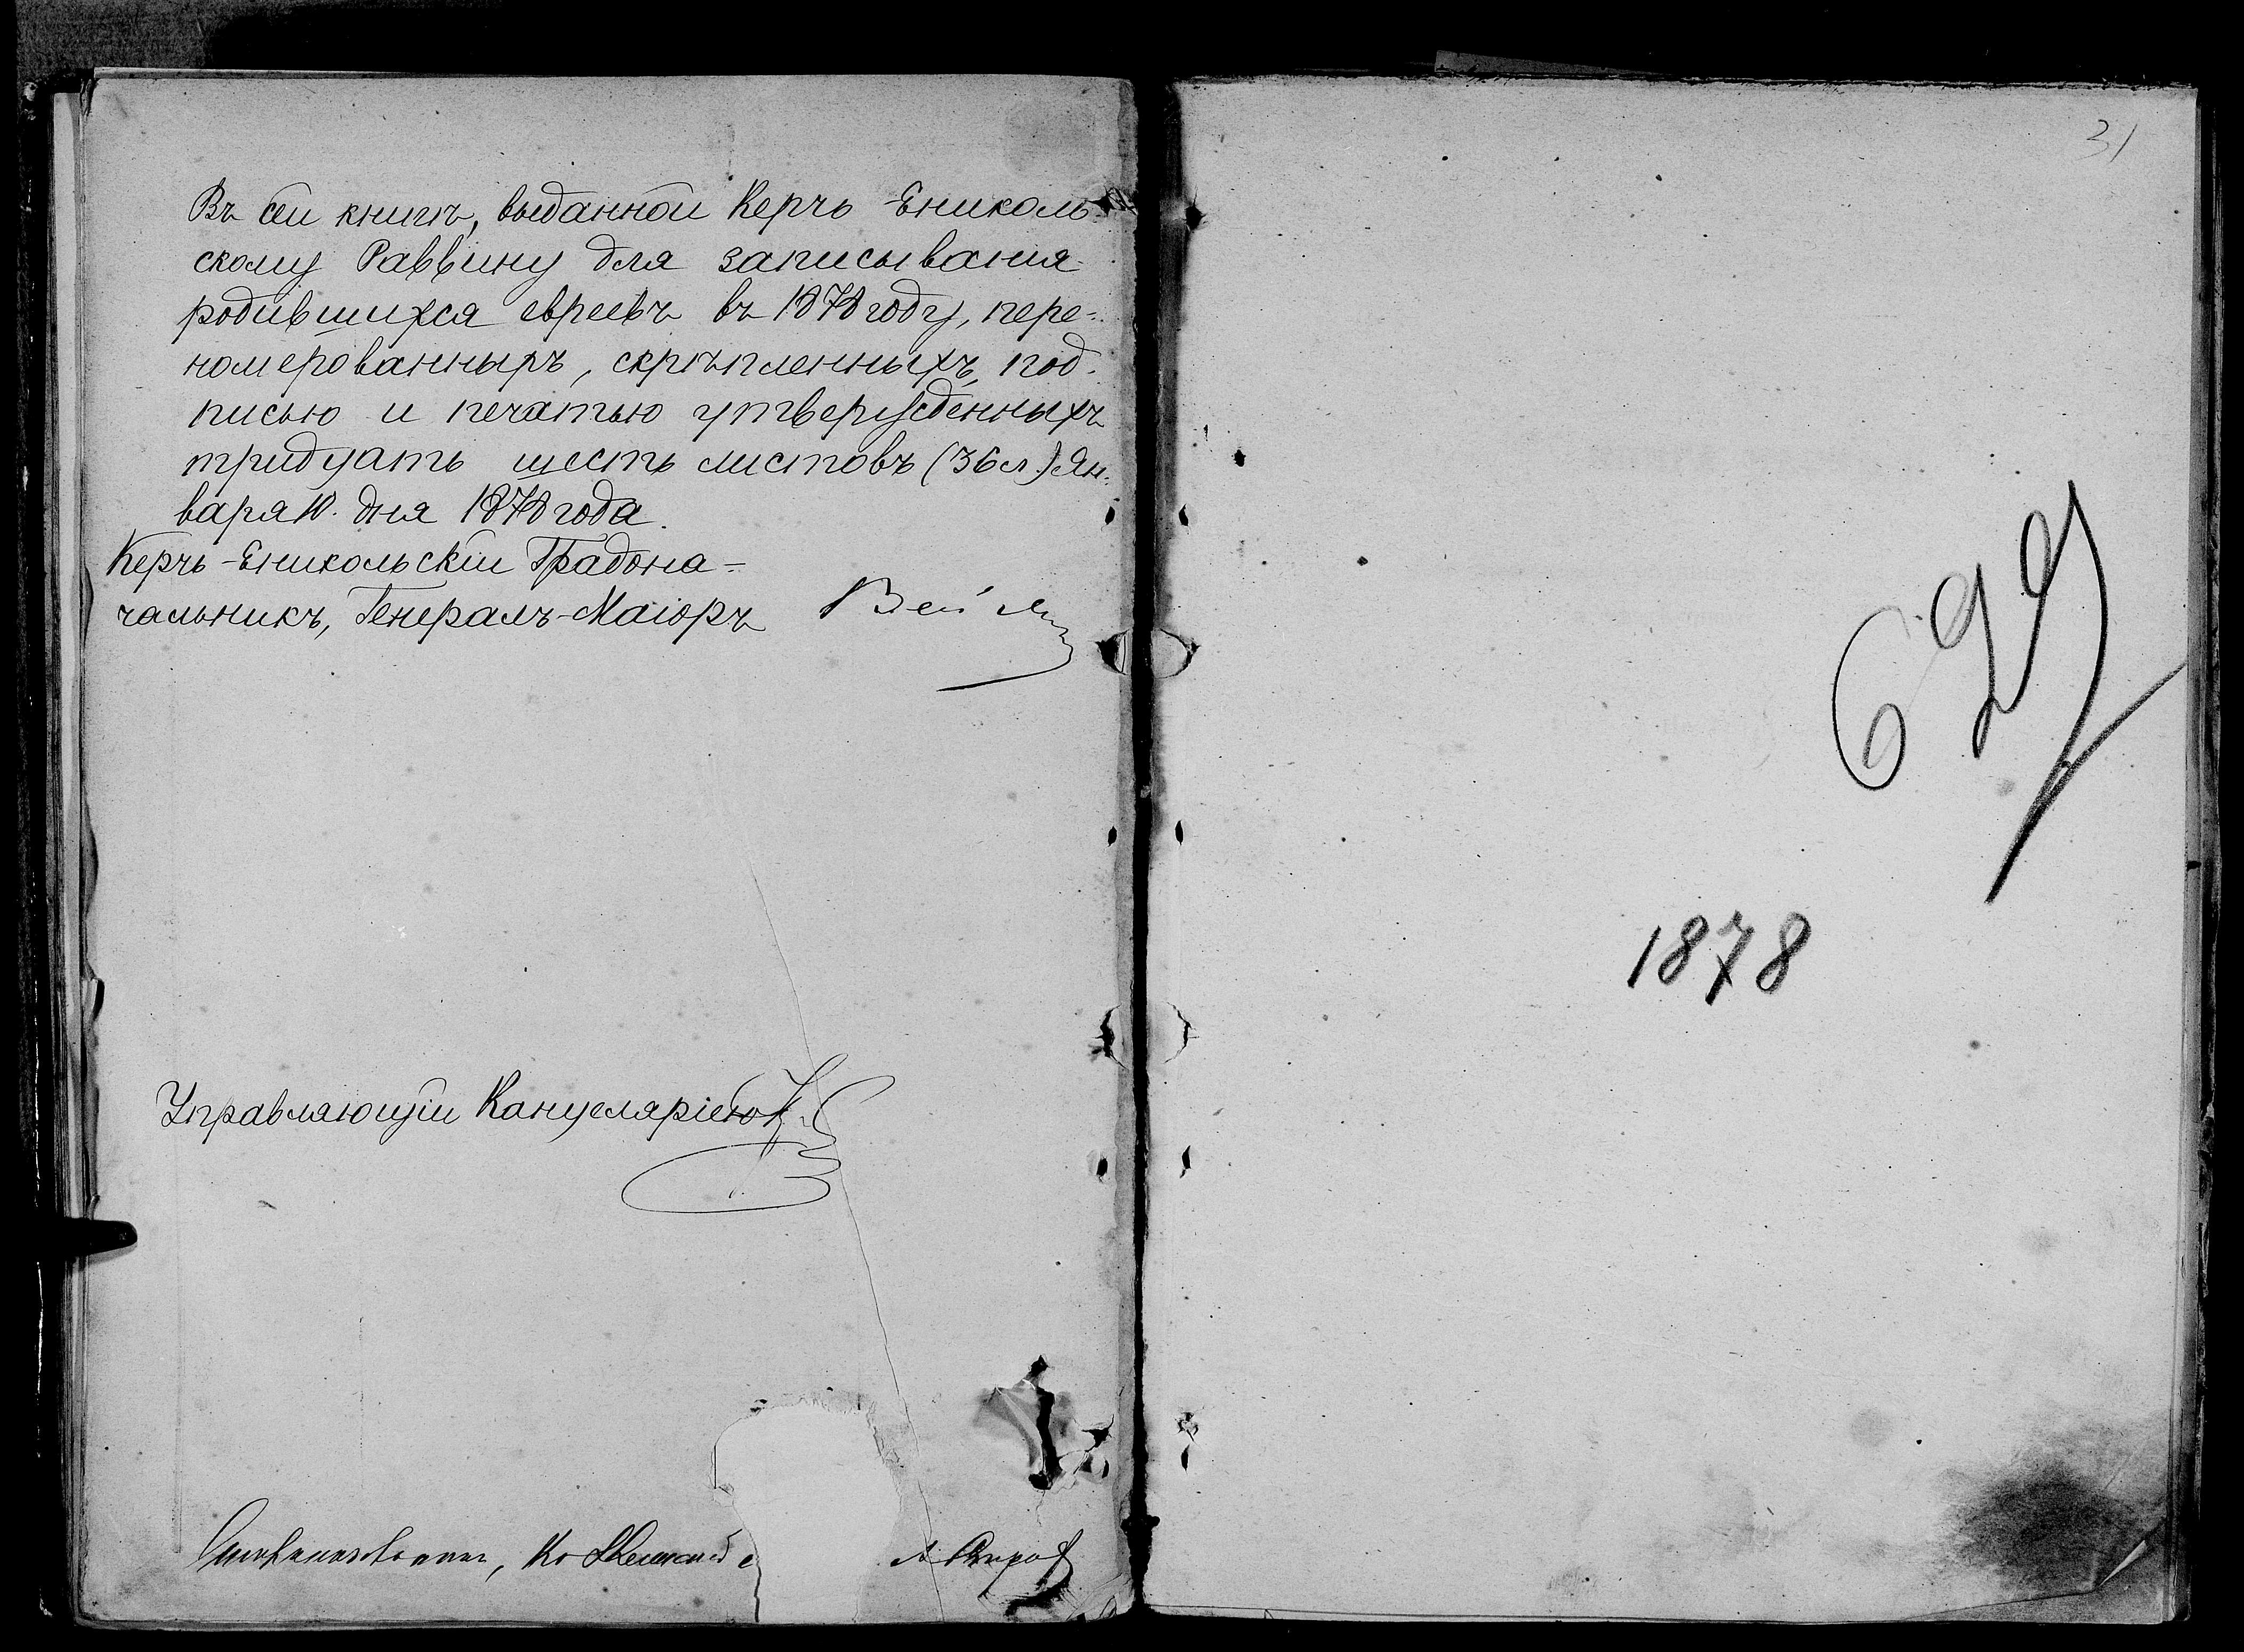 Въ сей книгѣ, выданной Керчь-Ениколь-
скому Раввину для записыванія
родившихся евреевъ въ 1878 году, пере-
номерованныхъ, скрѣпленныхъ под-
писью и печатью утвержденныхъ
тридцать шесть листовъ (36 л.) Ян-
варя 10. дня 1878 года.
Керчь-Еникольскій Градона-
чальникъ, Генералъ-Маіоръ
Управляющій Канцеляріею
31
629
1878